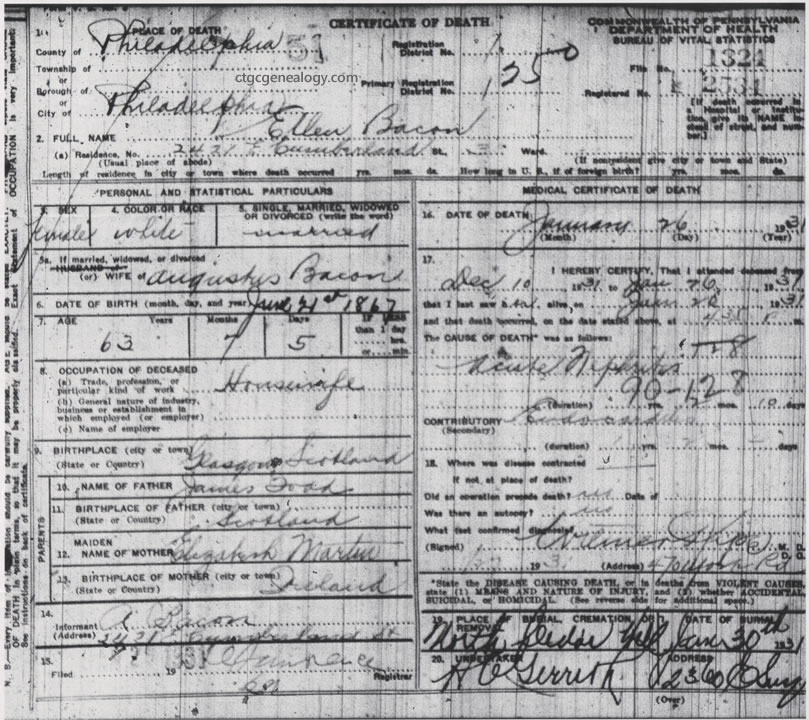 CERTIFICATE OF DEATH
COMMONWEALTH OF PENNSYLVANIA
DEPARTMENT OF HEALTH
BUREAU OF VITAL STATISTICS
1. PLACE OF DEATH
County of Philadelphia
Registration District No. 1
File No. 1324
Township of
or
Borough of
or
City of Philadelphia
ctgcgenealogy.com
Primary Registration District No. 1
250
Registered No.
[If death occurred in a Hospital or Institution, give its NAME instead of street, and number.]
2. FULL NAME Ellen Bacon
(a) Residence, No. 2421 E Cumberland St. Ward.
(Usual place of abode) (If nonresident give city or town and State)
Length of residence in city or town where death occurred yrs. mos. da. How long in U. S., if of foreign birth? yrs. mos. da.
PERSONAL AND STATISTICAL PARTICULARS
3. SEX
female
4. COLOR OR RACE
white
5. SINGLE, MARRIED, WIDOWED OR DIVORCED (write the word)
married
5a. If married, widowed, or divorced
HUSBAND of
(or) WIFE of Augustus Bacon
6. DATE OF BIRTH (month, day, and year) June 21st 1867
7. AGE Years Months Days IF LESS than 1 day
63 7 5
hrs.
or min.
8. OCCUPATION OF DECEASED
(a) Trade, profession, or particular kind of work Housewife
(b) General nature of industry, business or establishment in which employed (or employer)
(c) Name of employer
9. BIRTHPLACE (city or town) Glasgow Scotland
(State or Country)
PARENTS
10. NAME OF FATHER James Todd
11. BIRTHPLACE OF FATHER (city or town)
(State or Country) Scotland
12. MAIDEN NAME OF MOTHER Elizabeth Martin
13. BIRTHPLACE OF MOTHER (city or town)
(State or Country) Ireland
14.
Informant A. Bacon
(Address) 2421 E Cumberland St
15.
Filed 19
Registrar
MEDICAL CERTIFICATE OF DEATH
16. DATE OF DEATH January 26 1931
(Month) (Day) (Year)
17. I HEREBY CERTIFY, That I attended deceased from
Dec 10 1931 to Jan 26, 1931
that I last saw h alive on Jan 26 1931
and that death occurred, on the date stated above, at
The CAUSE OF DEATH* was as follows:
Acute Nephritis
90-128
(duration) yrs. mos. 10 days
CONTRIBUTORY
(Secondary)
(duration) yrs. mos. days
18. Where was disease contracted
if not at place of death?
Did an operation precede death? no Date of
Was there an autopsy? no
What test confirmed diagnosis?
(Signed) M. D.
(Address)
*State the DISEASE CAUSING DEATH, or in deaths from VIOLENT CAUSES, state (1) MEANS AND NATURE OF INJURY, and (2) whether ACCIDENTAL, SUICIDAL, or HOMICIDAL. (See reverse side for additional space.)
19. PLACE OF BURIAL, CREMATION OR REMOVAL DATE OF BURIAL
North Cedar Hill Jan 30th 1931
20. UNDERTAKER ADDRESS
(Over)